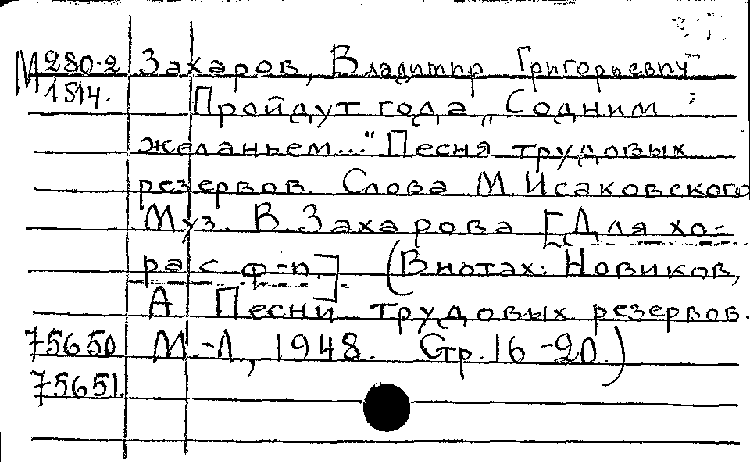 М280-2 Захаров, Владимир Григорьевич
1514. Пройдут года „С одним
желаньем..." Песня трудовых
резервов. Слова М. Исаковского
Муз. В. Захарова [Для хо-
ра с ф-п.] (В нотах: Новиков,
А Песни трудовых резервов.
75650 М.-Л, 1948. Стр. 16-20.)
75651.